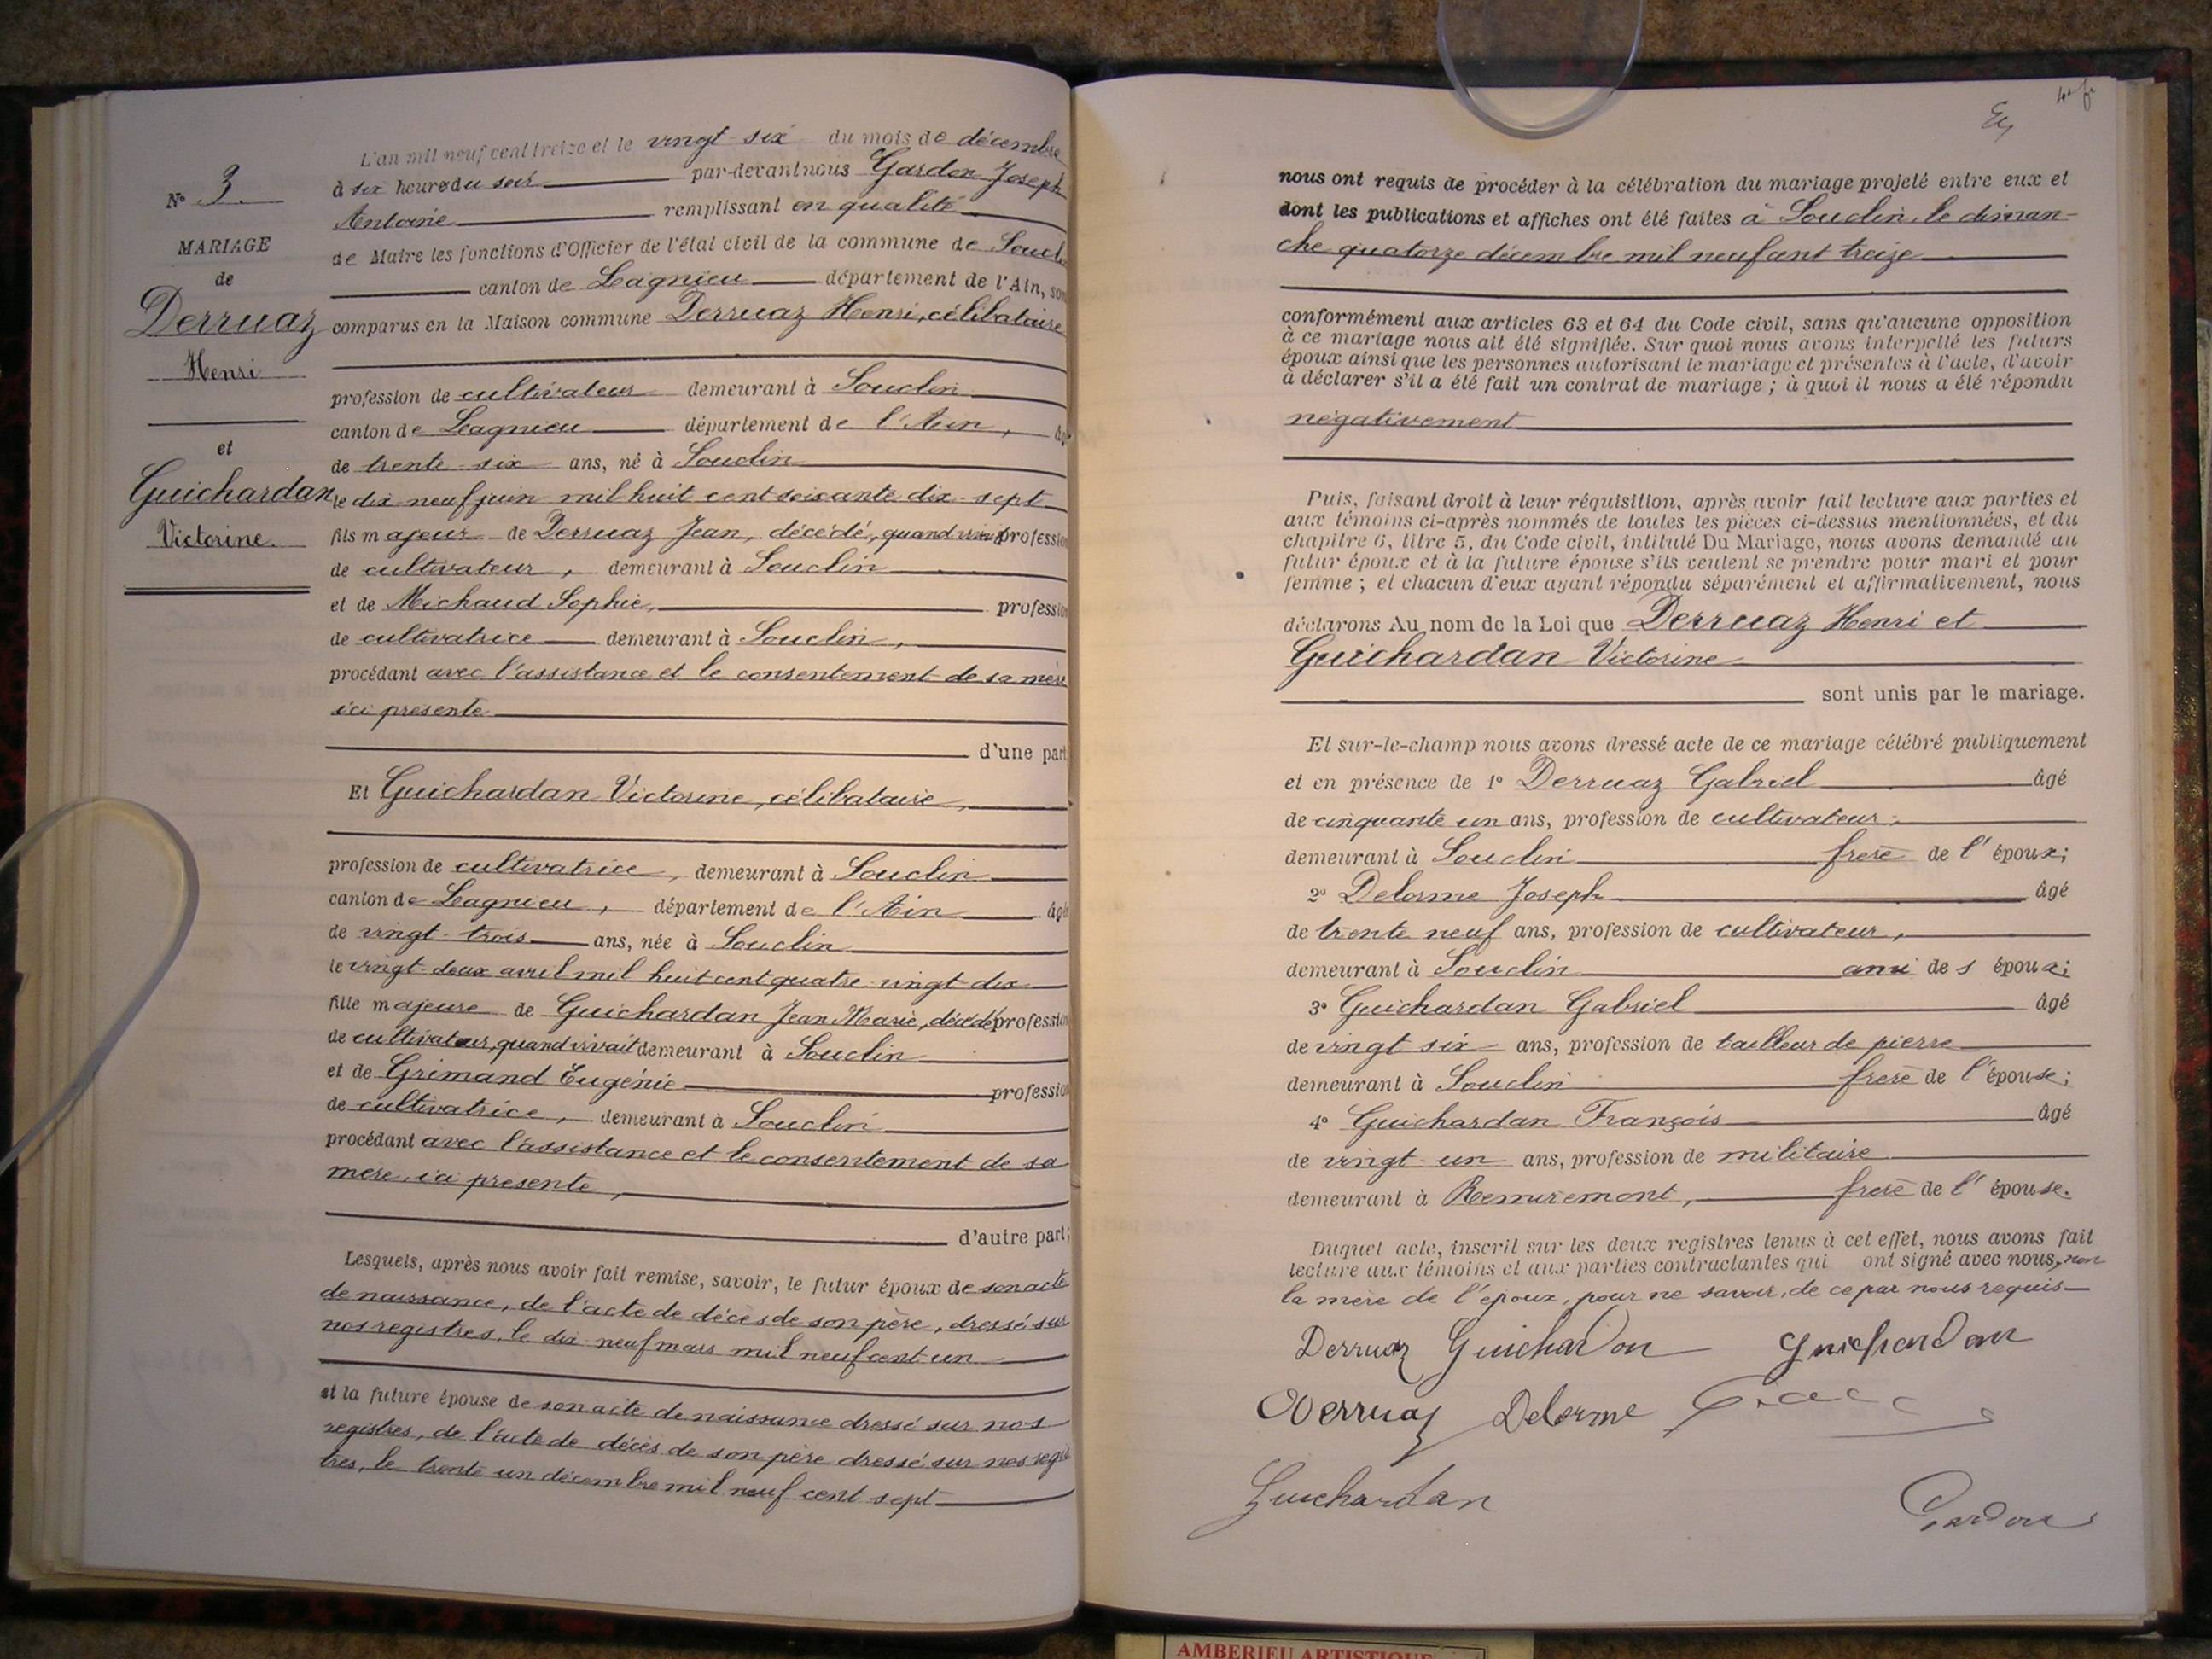 N° 3
MARIAGE
de
Derruaz
Henri
et
Guichardan
Victorine
L'an mil neuf cent treize et le vingt-six du mois de décembre
à six heures du soir par-devant nous Gardon Joseph
Antoine remplissant en qualité
de Maire les fonctions d'Officier de l'état civil de la commune de Soucl
canton de Lagnieu département de l'Ain, son
comparus en la Maison commune Derruaz Henri, célibataire
profession de cultivateur demeurant à Souclin
canton de Lagnieu département de l'Ain, âgé
de trente-six ans, né à Souclin
le dix-neuf juin mil huit cent soixante dix-sept
fils majeur de Derruaz Jean, décédé, quand vivait profession
de cultivateur, demeurant à Souclin
et de Michaud Sophie, profession
de cultivatrice demeurant à Souclin,
procédant avec l'assistance et le consentement de sa mère
ici présente
d'une part
Et Guichardan Victorine, célibataire,
profession de cultivatrice, demeurant à Souclin
canton de Lagnieu, département de l'Ain âgée
de vingt-trois ans, née à Souclin
le vingt-deux avril mil huit cent quatre-vingt-dix
fille majeure de Guichardan Jean Marie, décédé profession
de cultivateur, quand vivait demeurant à Souclin
et de Grimand Eugénie profession
de cultivatrice, demeurant à Souclin
procédant avec l'assistance et le consentement de sa
mère, ici présente,
d'autre part;
Lesquels, après nous avoir fait remise, savoir, le futur époux de son acte
de naissance, de l'acte de décès de son père, dressé sur
nos registres, le dix-neuf mars mil neuf cent un
et la future épouse de son acte de naissance dressé sur nos
registres, de l'acte de décès de son père dressé sur nos regis
tres, le trente un décembre mil neuf cent sept
nous ont requis de procéder à la célébration du mariage projeté entre eux et
dont les publications et affiches ont été faites à Souclin, le diman-
che quatorze décembre mil neuf cent treize
conformément aux articles 63 et 64 du Code civil, sans qu'aucune opposition
à ce mariage nous ait été signifiée. Sur quoi nous avons interpellé les futurs
époux ainsi que les personnes autorisant le mariage et présentes à l'acte, d'avoir
à déclarer s'il a été fait un contrat de mariage ; à quoi il nous a été répondu
négativement
Puis, faisant droit à leur réquisition, après avoir fait lecture aux parties et
aux témoins ci-après nommés de toutes les pièces ci-dessus mentionnées, et du
chapitre 6, titre 5, du Code civil, intitulé Du Mariage, nous avons demandé au
futur époux et à la future épouse s'ils veulent se prendre pour mari et pour
femme ; et chacun d'eux ayant répondu séparément et affirmativement, nous
déclarons Au nom de la Loi que Derruaz Henri et
Guichardan Victorine
sont unis par le mariage.
Et sur-le-champ nous avons dressé acte de ce mariage célébré publiquement
et en présence de 1° Derruaz Gabriel âgé
de cinquante un ans, profession de cultivateur,
demeurant à Souclin frère de l'époux;
2° Delorme Joseph âgé
de trente neuf ans, profession de cultivateur,
demeurant à Souclin ami des époux;
3° Guichardan Gabriel âgé
de vingt six ans, profession de tailleur de pierre
demeurant à Souclin frère de l'épouse;
4° Guichardan François âgé
de vingt-un ans, profession de militaire
demeurant à Remiremont, frère de l'épouse.
Duquel acte, inscrit sur les deux registres tenus à cet effet, nous avons fait
lecture aux témoins et aux parties contractantes qui ont signé avec nous, non
la mère de l'époux, pour ne savoir, de ce par nous requis
Derruaz Guichardon Guichardan
Derruaz Delorme
Guichardan
Gardon
AMBERIEU ARTISTIQUE